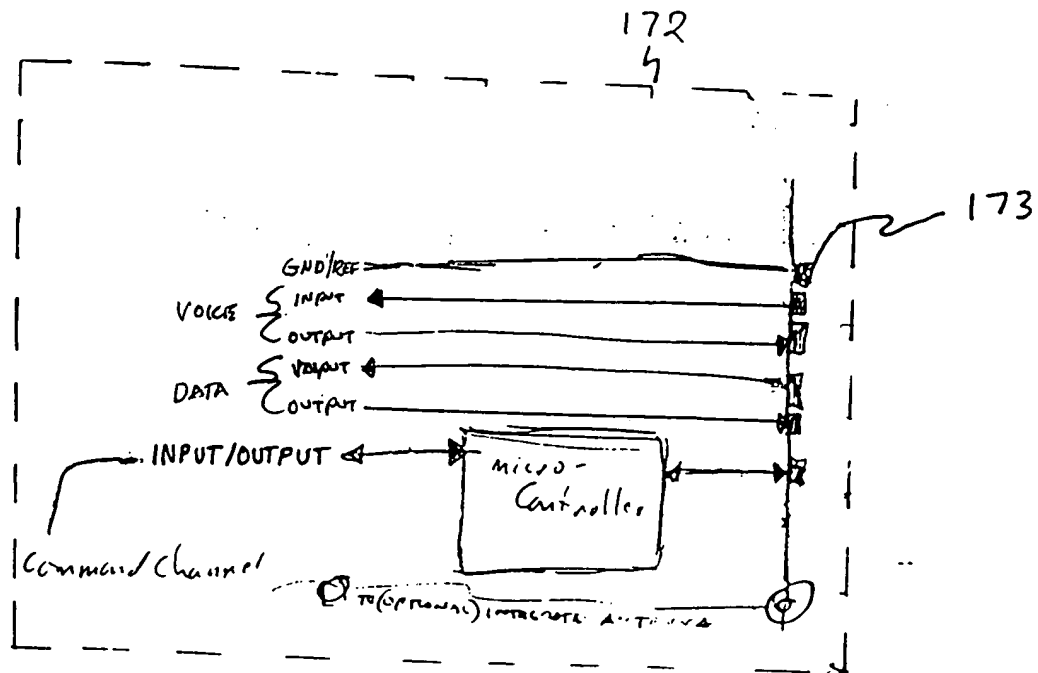 172
173
GND/REF
VOICE
INPUT
OUTPUT
DATA
OUTPUT
INPUT/OUTPUT
micro-
Controller
Command Channel
TO (OPTIONAL) ANTENNA